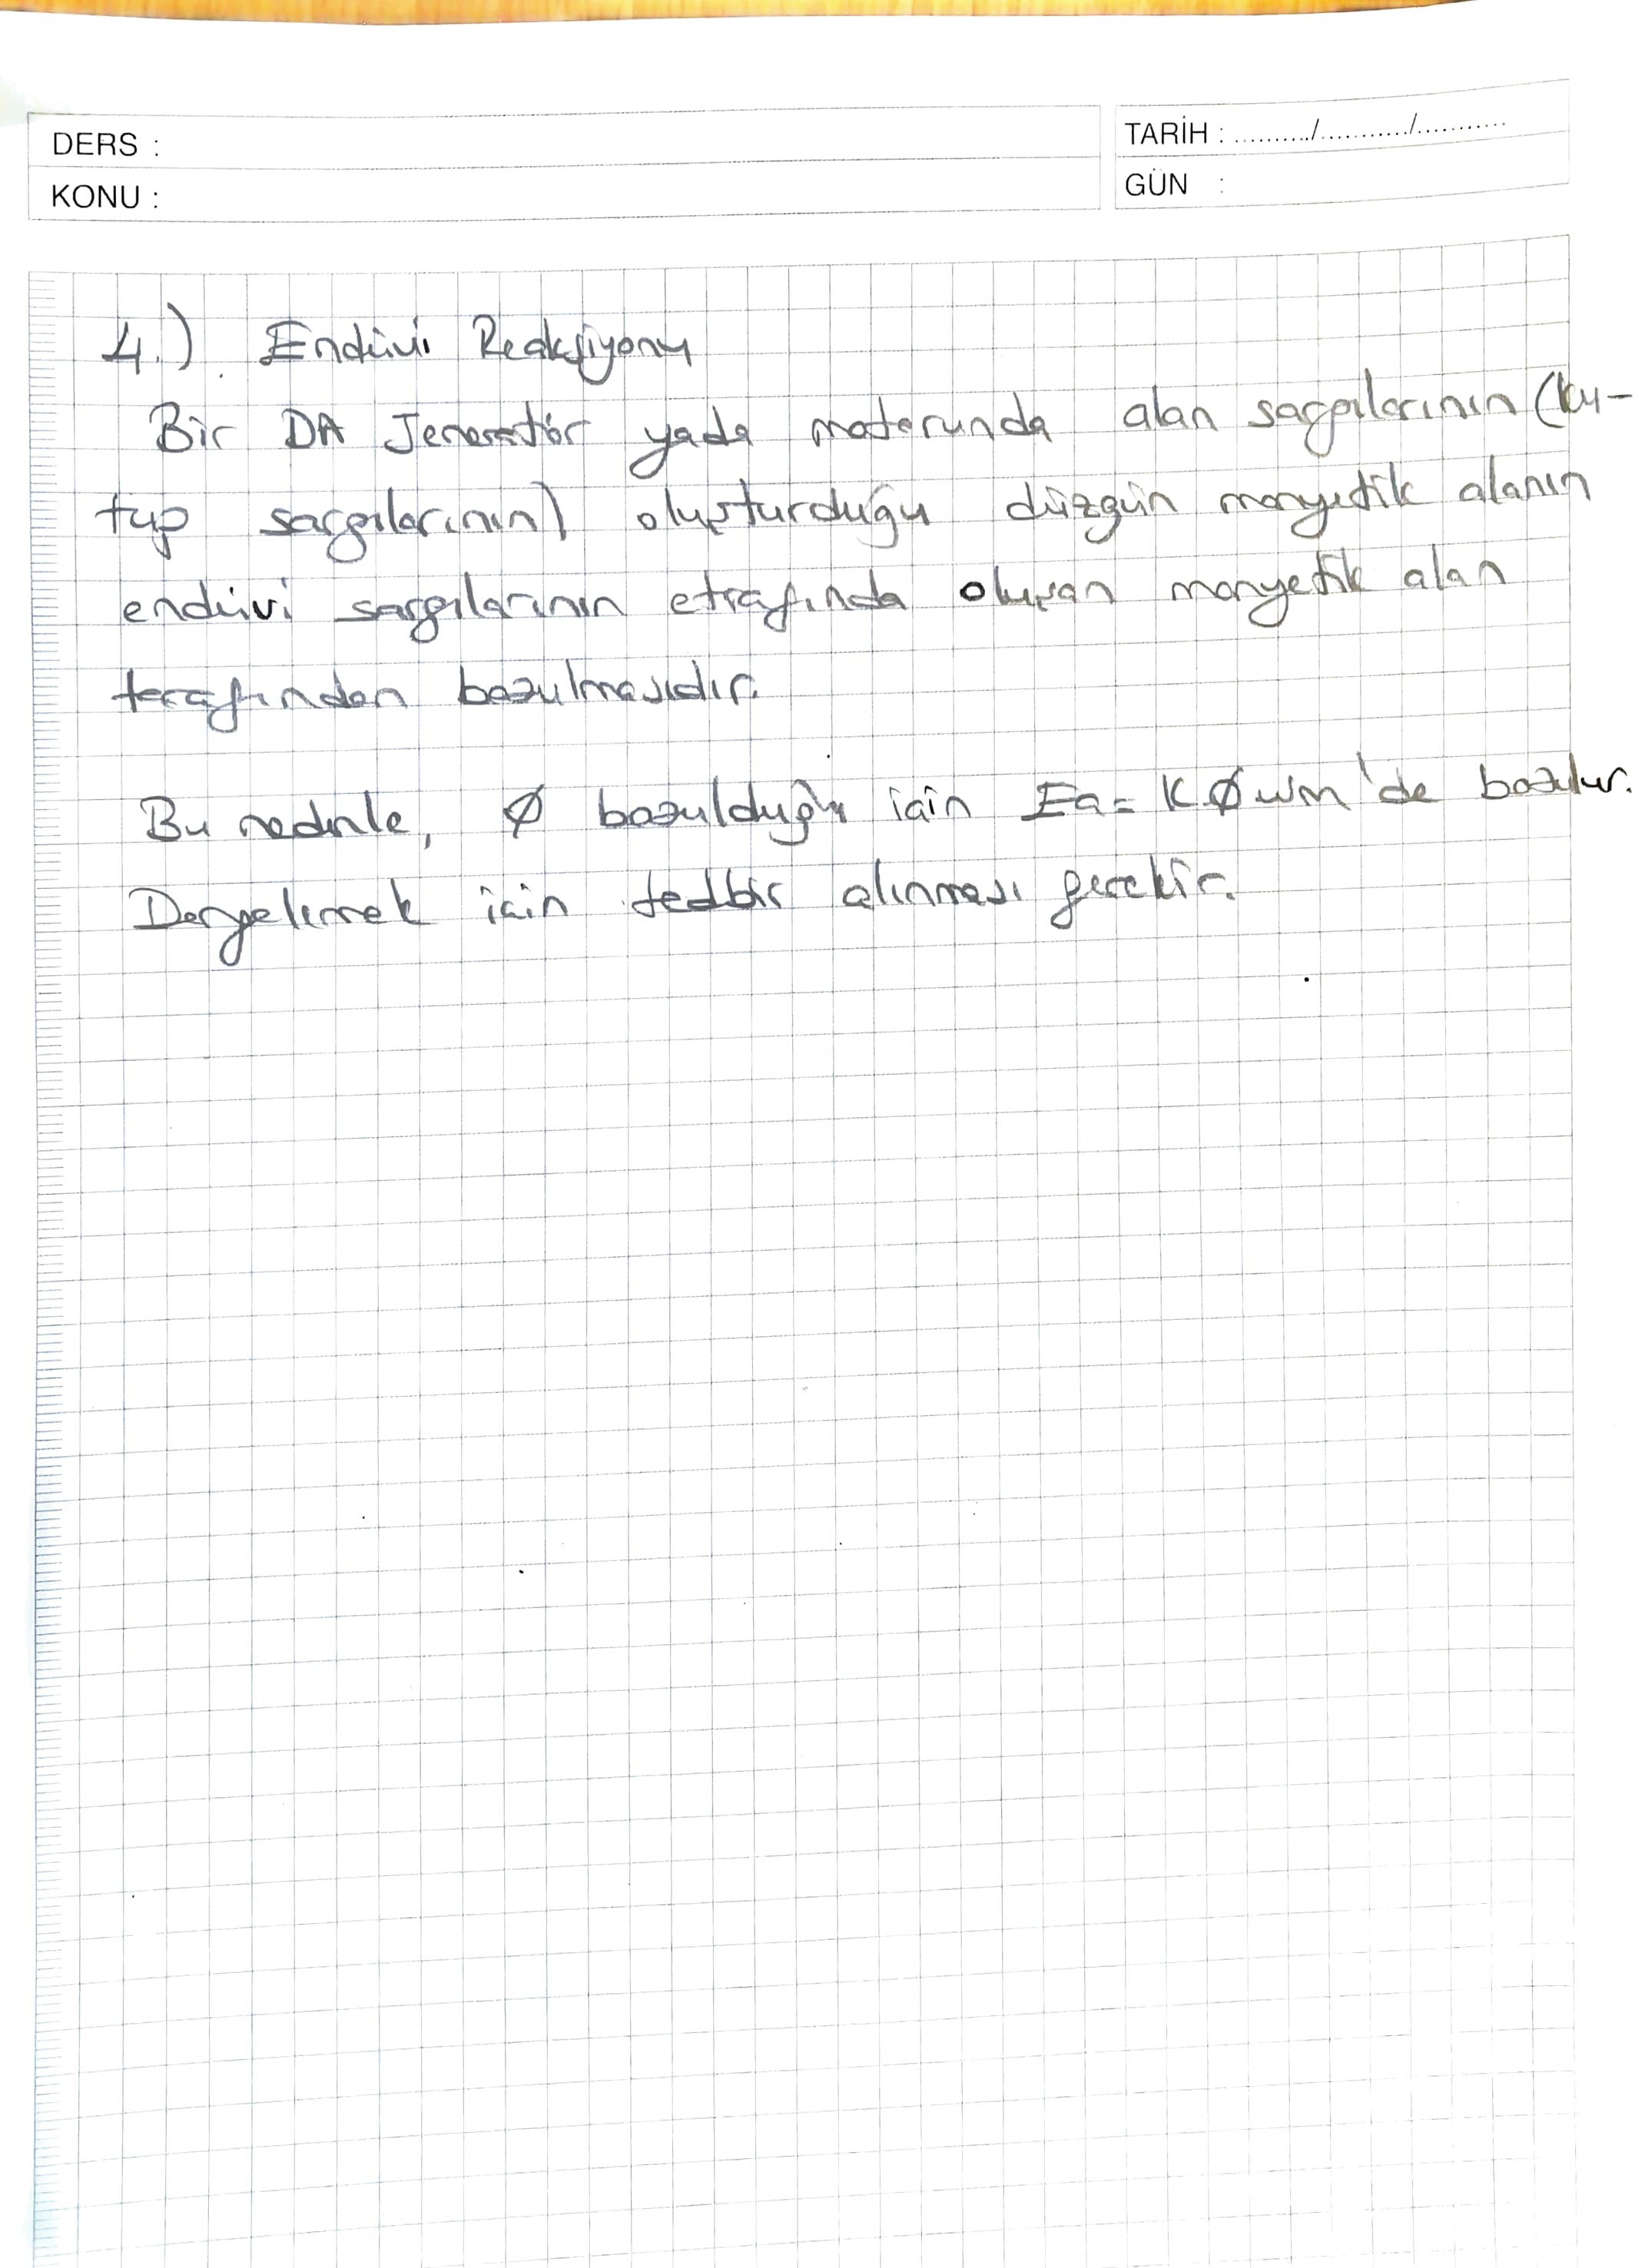 DERS :
TARİH : ........../.........../...........
KONU :
GÜN :
4.) Endüvi Reaksiyonu
Bir DA Jeneratör yada motorunda alan sargılarının (ku-
tup sargılarının) oluşturduğu düzgün manyetik alanın
endüvi sargılarının etrafında oluşan manyetik alan
tarafından bozulmasıdır.
Bu nedenle, Ø bozulduğu için Ea = K.Øwm 'de bozulur.
Dengelemek için tedbir alınması gerekir.